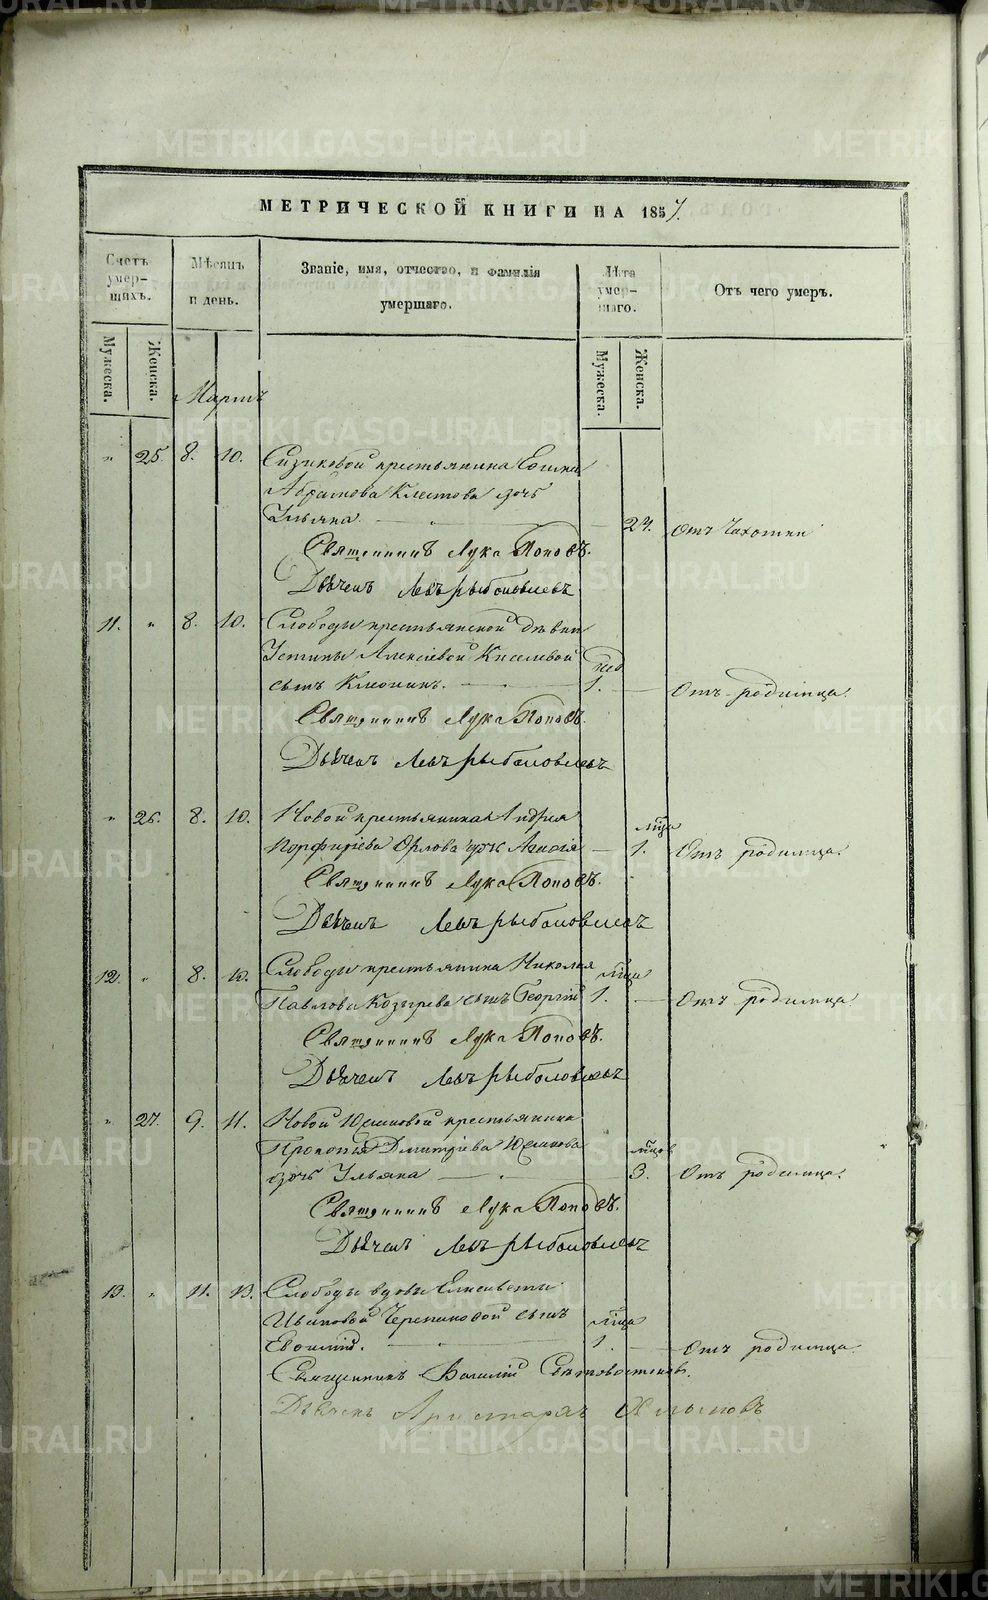 МЕТРИЧЕСКОЙ КНИГИ НА 1857.
Счетъ умер-шихъ.
Мѣсяцъ и день.
Званіе, имя, отчество, и фамилія умершаго.
Лѣта умер-шаго.
Отъ чего умеръ.
Мужеска.
Женска.
Мужеска.
Женска.
Мартъ
" 25. 8. 10. крестьянина
Абрамова дочь
Ульяна — " — 24. Отъ Чахотки
Священникъ Лука Поповъ.
Дьячекъ Левъ Рыболовлевъ
11. " 8. 10. Слободы крестьянской дѣвки
Устины Алексіевой Киселевой нед
сынъ — " — 1. — Отъ родимца.
Священникъ Лука Поповъ.
Дьячекъ Левъ Рыболовлевъ
" 26. 8. 10. Новой крестьянина Андрея мѣца
Порфиріева Орлова дочь — 1. Отъ родимца.
Священникъ Лука Поповъ.
Дьячекъ Левъ Рыболовлевъ
12. " 8. 10. Слободы крестьянина Николая мѣца
Павлова Козырева сынъ Георгій 1. — Отъ родимца
Священникъ Лука Поповъ.
Дьячекъ Левъ Рыболовлевъ
" 27. 9. 11. Новой крестьянина
Прокопія Дмитріева мѣцов
дочь Ульяна — " — 3. Отъ родимца.
Священникъ Лука Поповъ.
Дьячекъ Левъ Рыболовлевъ
13. " 11. 13. Слободы вдовы Елисаветы
Ивановой сынъ мѣца
1. — Отъ родимца
Священникъ Василій
Дьячекъ Аристархъ
METRIKI.GASO-URAL.RU